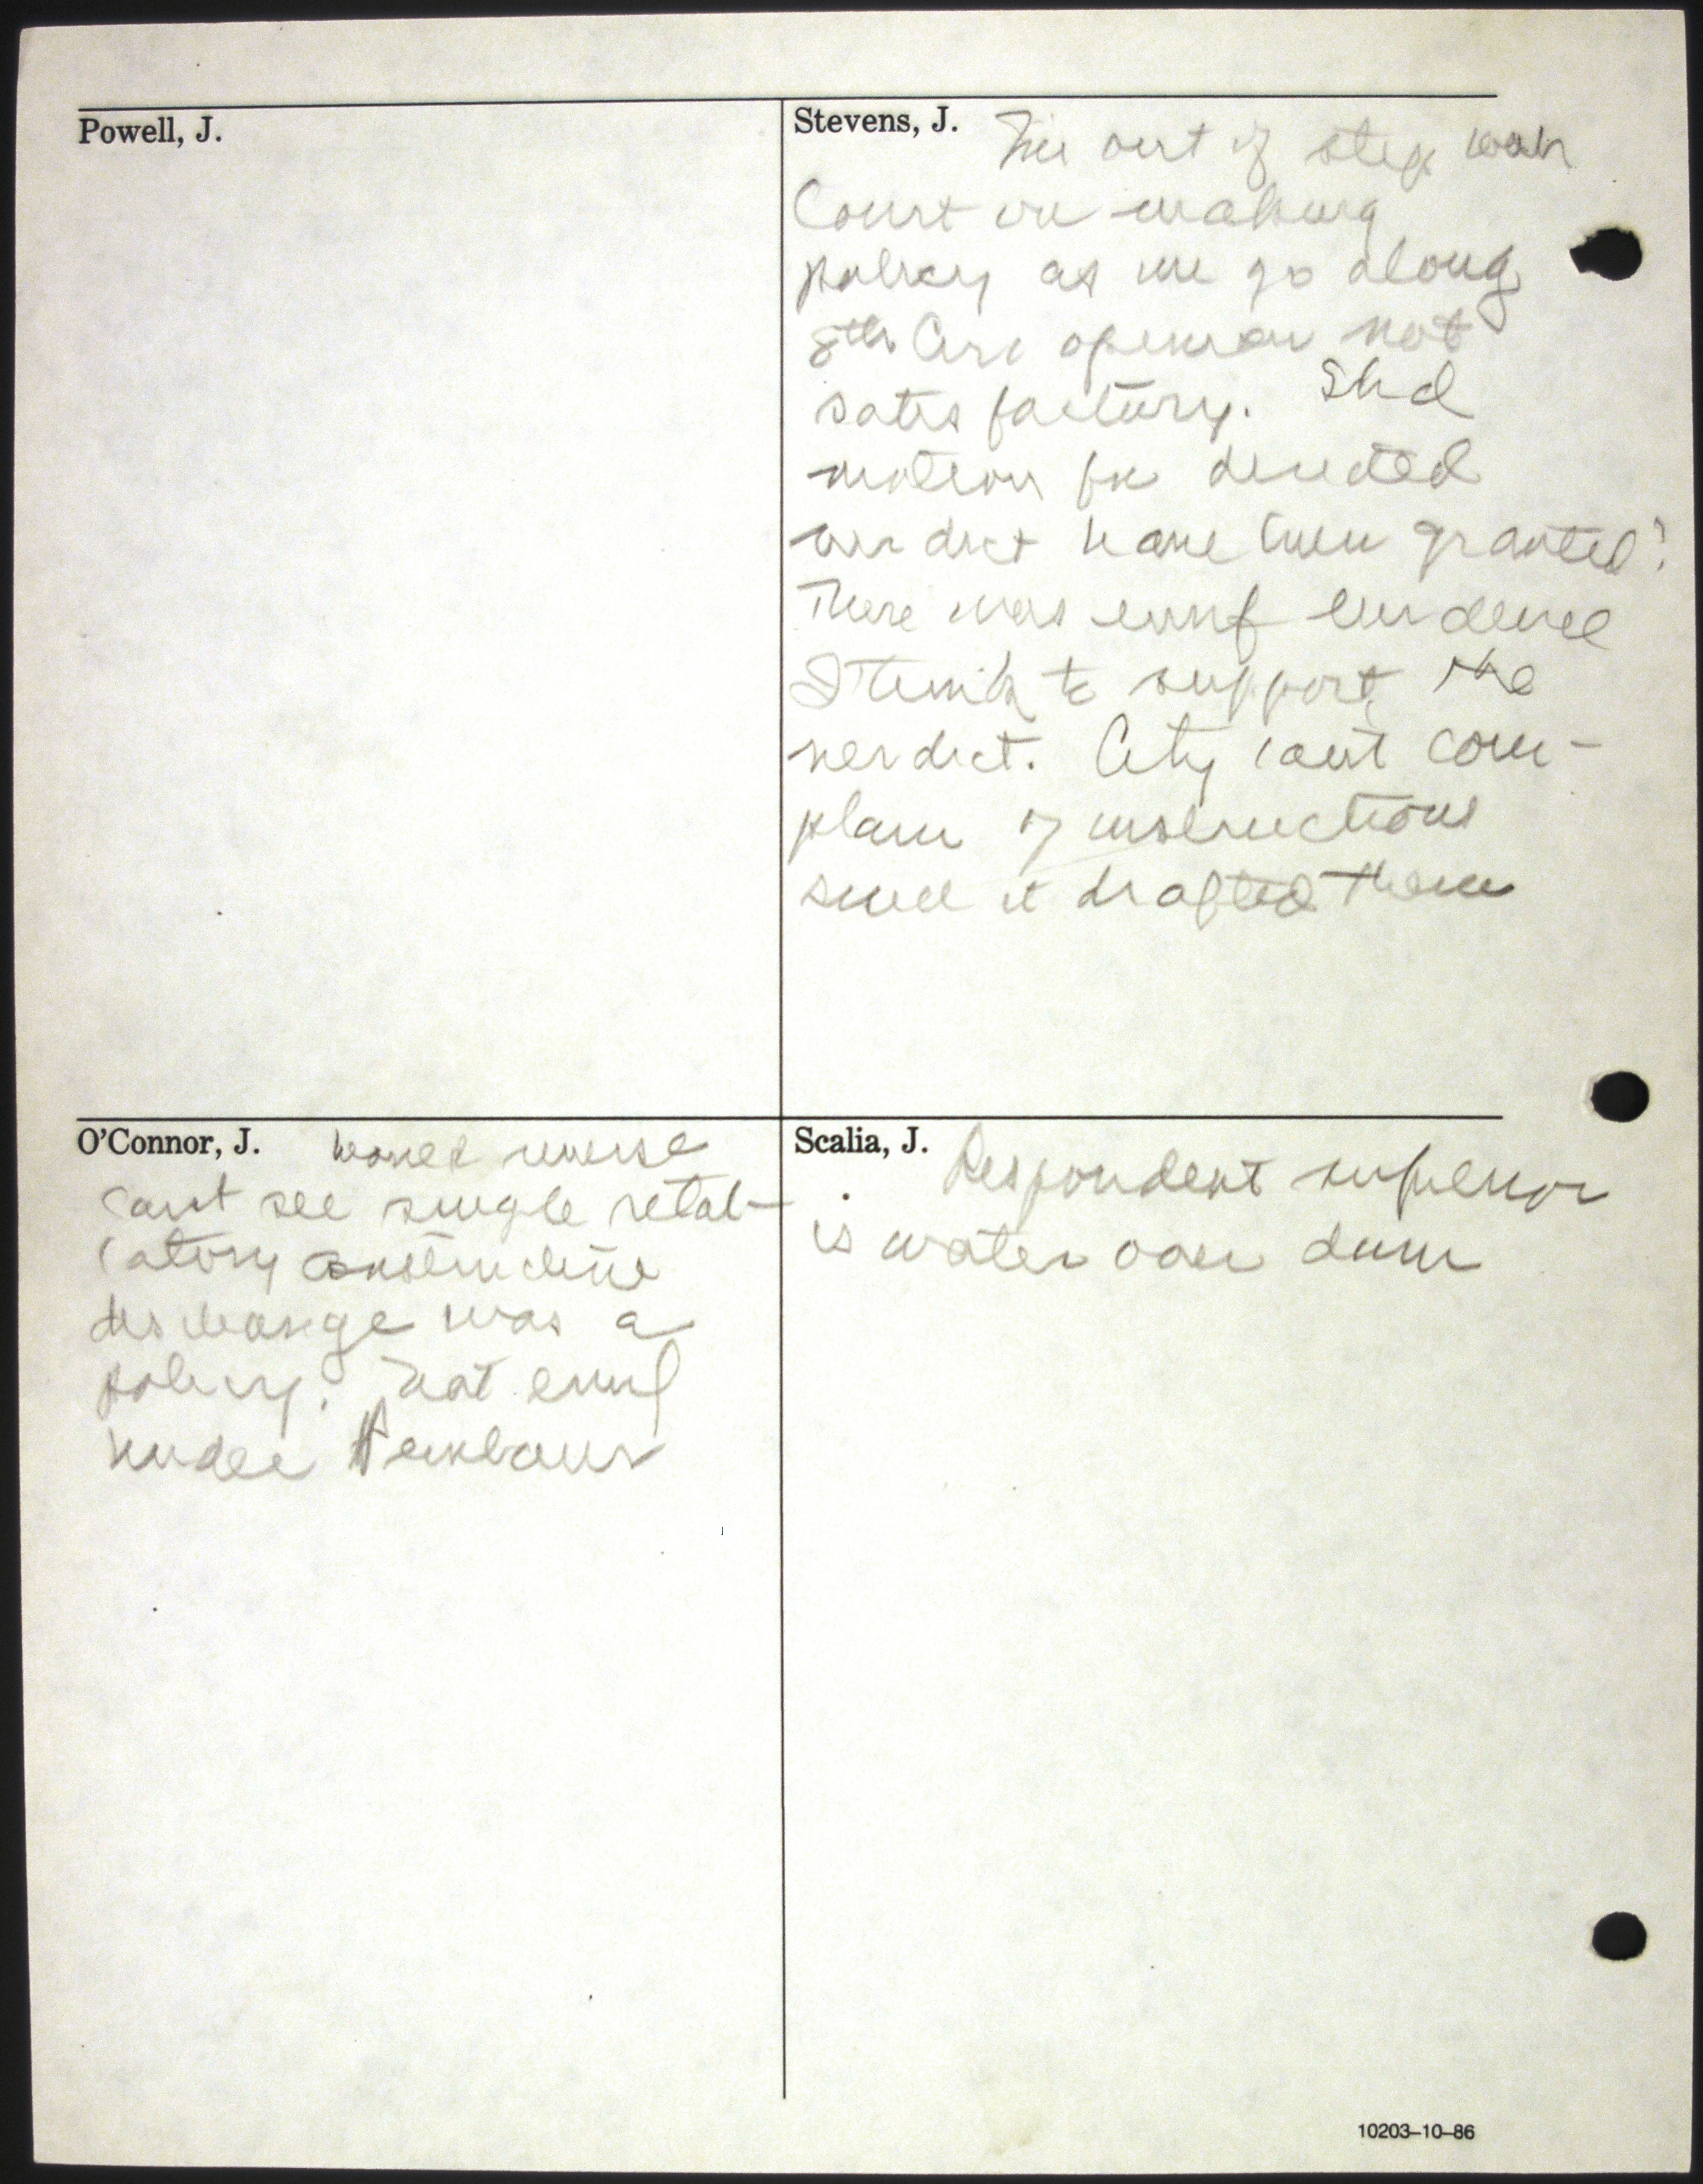 Powell, J.
Stevens, J. I'm out of step with
Court on making
policy as we go along
8th Circ opinion not
satisfactory. Shd
motion for directed
verdict have been granted?
There was enuf evidence
I think to support the
verdict. City can't com-
plain of instructions
since it drafted them
O'Connor, J. would reverse
can't see single retal-
iatory constructive
discharge was a
policy. Not enuf
under Pembaur
Scalia, J. Respondent superior
is water over dam
10203–10–86